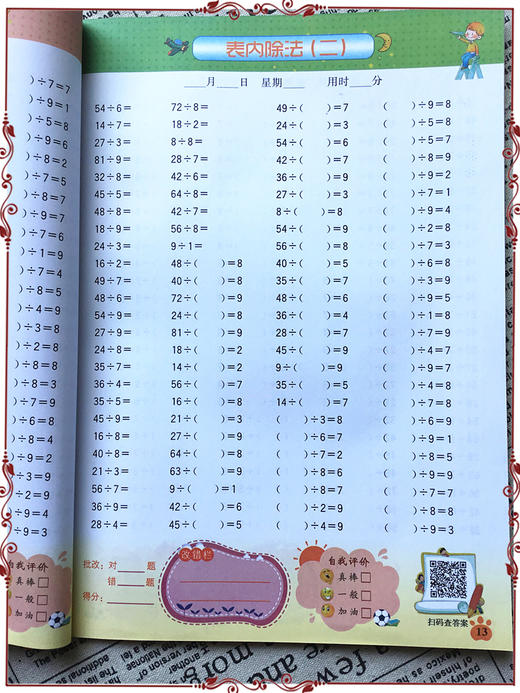 )÷7=7
)÷9=1
)÷5=8
)÷9=6
)÷8=2
)÷7=5
)÷8=7
)÷9=7
)÷7=6
)÷1=9
)÷7=4
)÷8=5
)÷4=9
)÷3=8
)÷2=8
)÷8=8
)÷8=3
)÷7=9
)÷6=8
)÷8=4
)÷9=2
)÷3=9
)÷2=9
)÷8=9
)÷9=3
自我评价
真棒
一般
加油
表内除法(二)
____月____日 星期____ 用时____分
54÷6= 72÷8= 49÷( )=7 ( )÷9=8
14÷7= 18÷2= 24÷( )=3 ( )÷5=8
27÷3= 8÷8= 54÷( )=6 ( )÷5=7
81÷9= 28÷7= 42÷( )=7 ( )÷8=9
32÷8= 42÷6= 36÷( )=9 ( )÷9=2
45÷5= 64÷8= 27÷( )=3 ( )÷7=1
48÷8= 42÷7= 8÷( )=8 ( )÷9=4
18÷9= 56÷8= 54÷( )=9 ( )÷2=8
24÷3= 9÷1= 56÷( )=8 ( )÷7=3
16÷2= 48÷( )=8 40÷( )=5 ( )÷6=8
49÷7= 40÷( )=8 35÷( )=7 ( )÷3=9
48÷6= 72÷( )=9 48÷( )=6 ( )÷9=5
54÷9= 24÷( )=8 36÷( )=4 ( )÷1=8
27÷9= 81÷( )=9 28÷( )=7 ( )÷8=9
24÷8= 18÷( )=2 45÷( )=9 ( )÷4=7
35÷7= 14÷( )=2 9÷( )=9 ( )÷9=7
36÷4= 56÷( )=7 35÷( )=5 ( )÷7=8
35÷5= 16÷( )=8 14÷( )=7 ( )÷4=8
45÷9= 21÷( )=3 ( )÷3=8 ( )÷6=9
16÷8= 27÷( )=9 ( )÷6=7 ( )÷9=1
40÷8= 64÷( )=8 ( )÷7=2 ( )÷8=5
21÷3= 63÷( )=9 ( )÷8=6 ( )÷9=9
56÷7= 9÷( )=1 ( )÷8=7 ( )÷7=7
36÷9= 42÷( )=6 ( )÷2=9 ( )÷8=8
28÷4= 45÷( )=5 ( )÷4=9 ( )÷9=3
批改:对____题
错____题
得分:________
改错栏
自我评价
真棒
一般
加油
扫码查答案
13